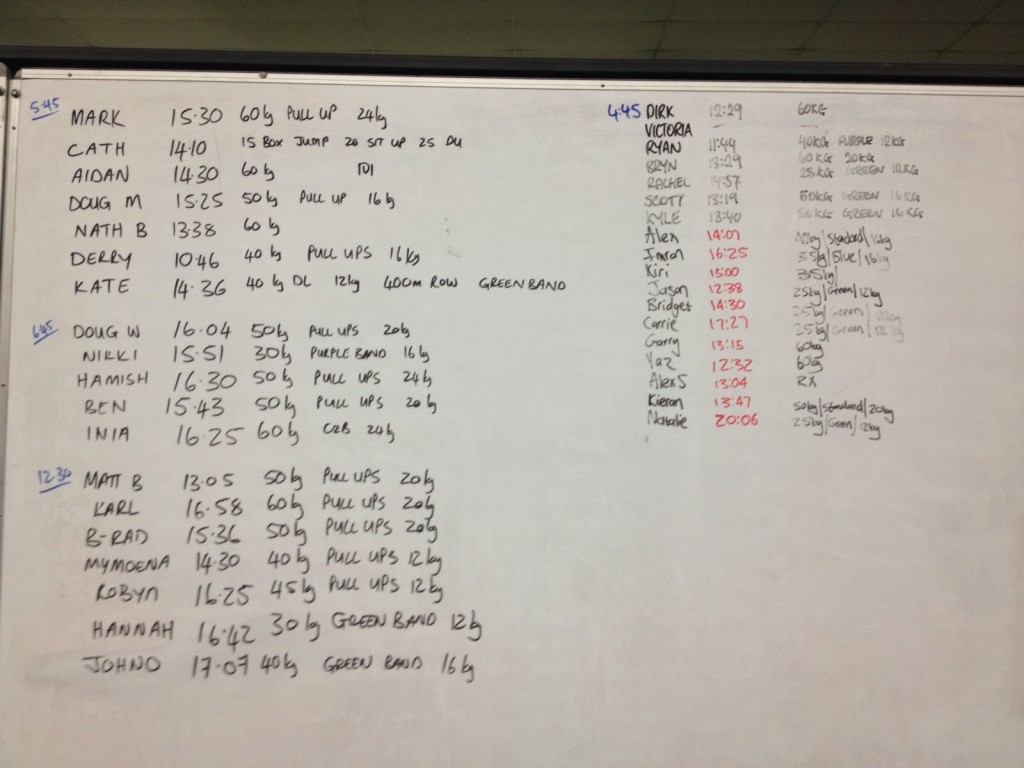 5:45 MARK 15.30 60kg PULL UP 24kg
CATH 14.10 15 BOX JUMP 20 SIT UP 25 DU
AIDAN 14.30 60kg
DOUG M 15.25 50kg PULL UP 16kg
NATH B 13.38 60kg
DERRY 10.46 40kg PULL UPS 16kg
KATE 14.36 40kg DL 12kg 400M ROW GREEN BAND
6:45 DOUG W 16.04 50kg PULL UPS 20kg
NIKKI 15.51 30kg PURPLE BAND 16kg
HAMISH 16.30 50kg PULL UPS 24kg
BEN 15.43 50kg PULL UPS 20kg
INIA 16.25 60kg C2B 24kg
12.30 MATT B 13.05 50kg PULL UPS 20kg
KARL 16.58 60kg PULL UPS 20kg
B-RAD 15.36 50kg PULL UPS 20kg
MYMOENA 14.30 40kg PULL UPS 12kg
ROBYN 16.25 45kg PULL UPS 12kg
HANNAH 16.42 30kg GREEN BAND 12kg
JOHNO 17.07 40kg GREEN BAND 16kg
4:45 DIRK 12:29 60KG
VICTORIA –
RYAN 11:44 40KG PURPLE 12KG
BRYN 13:29 60KG 20KG
RACHEL 14:57 25KG GREEN 12KG
SCOTT 13:19 50KG GREEN 16KG
KYLE 13:40 50KG GREEN 16KG
Alex 14:07 Standard
Imron 16:25 35kg/Blue/16kg
Kiri 13:00 35kg/
Jason 12:38 25kg/Green/12kg
Bridget 14:30 25kg/Green/
Carrie 17:27 25kg/Green/12kg
Garry 13:15 60kg
Yaz 12:32 60kg
Alex S 13:04 RX
Kieran 13:47 50kg/Standard/20kg
Natalie 20:06 25kg/Green/12kg